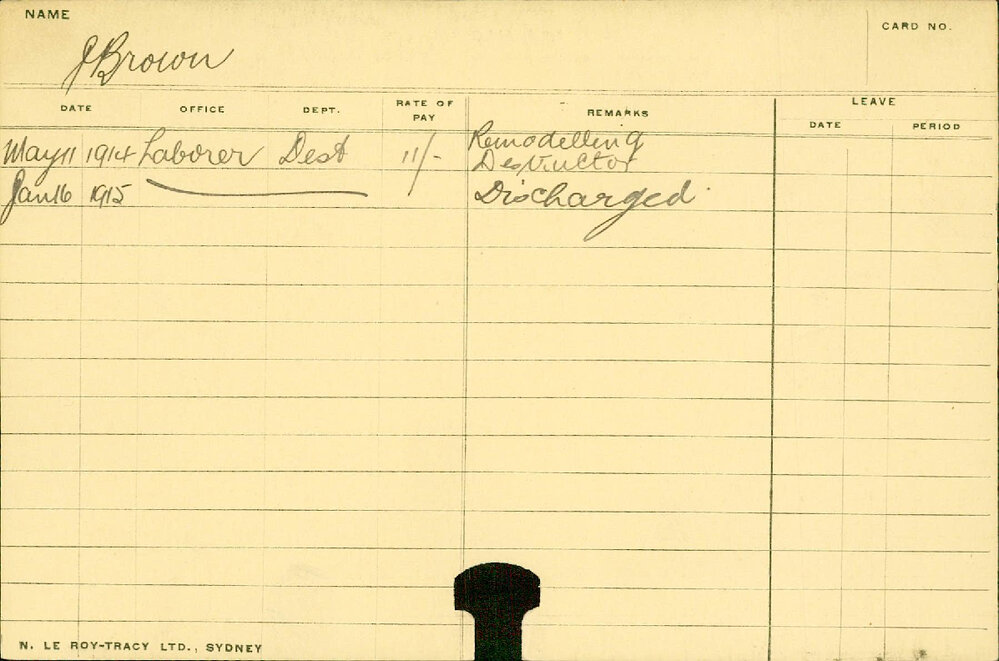 NAME
CARD NO.
J Brown
DATE OFFICE DEPT. RATE OF PAY REMARKS LEAVE
DATE PERIOD
May 11 1914 Laborer Dest 11/- Remodelling
Destructor
Jan 16 1915 Discharged
N. LE ROY-TRACY LTD., SYDNEY